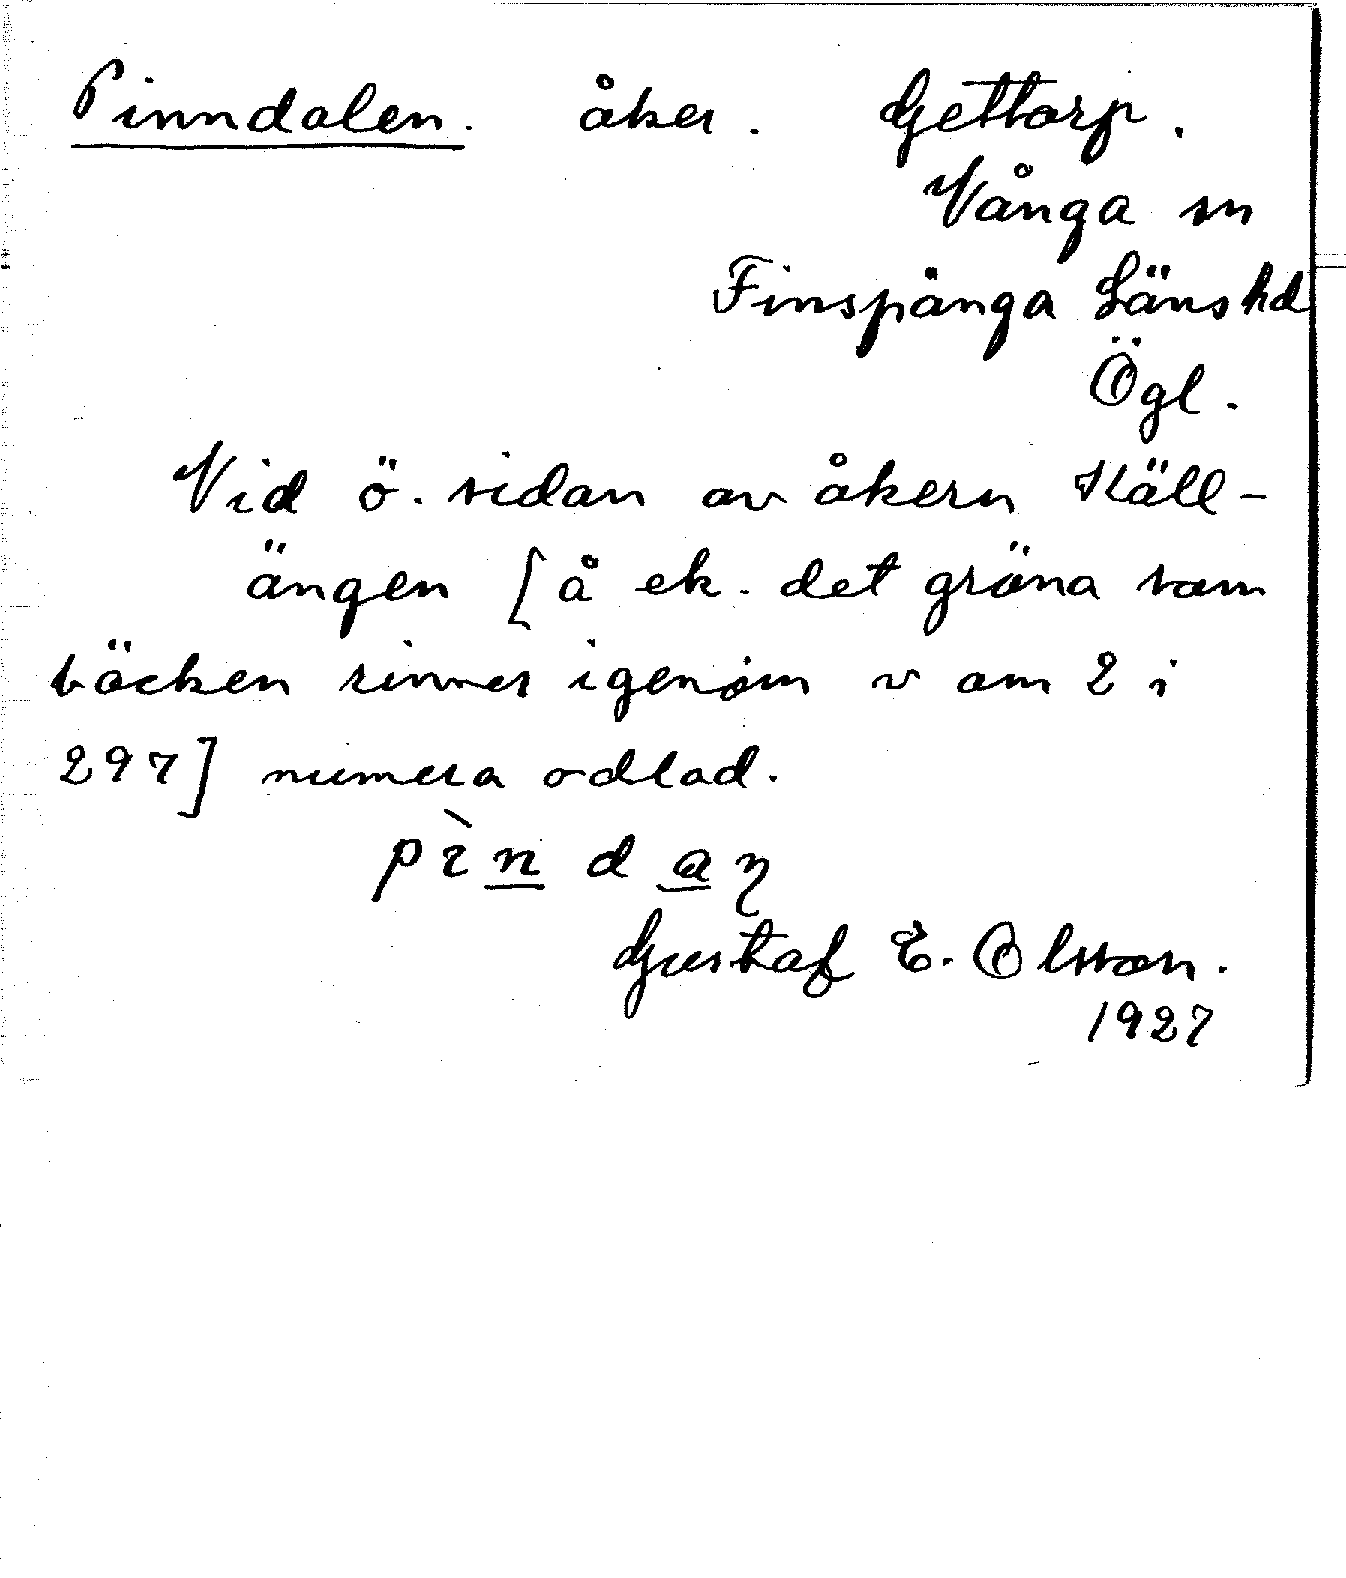 Pinndalen. åker. Gettorp.
Vånga sn
Finspånga Läns hd
Ögl.
Vid ö. sidan av åkern Käll-
ängen [å ek. det gröna som
bäcken rinner igenom v om 2 i
297] numera odlad.
pìn daɳ
Gustaf E. Olsson.
1927